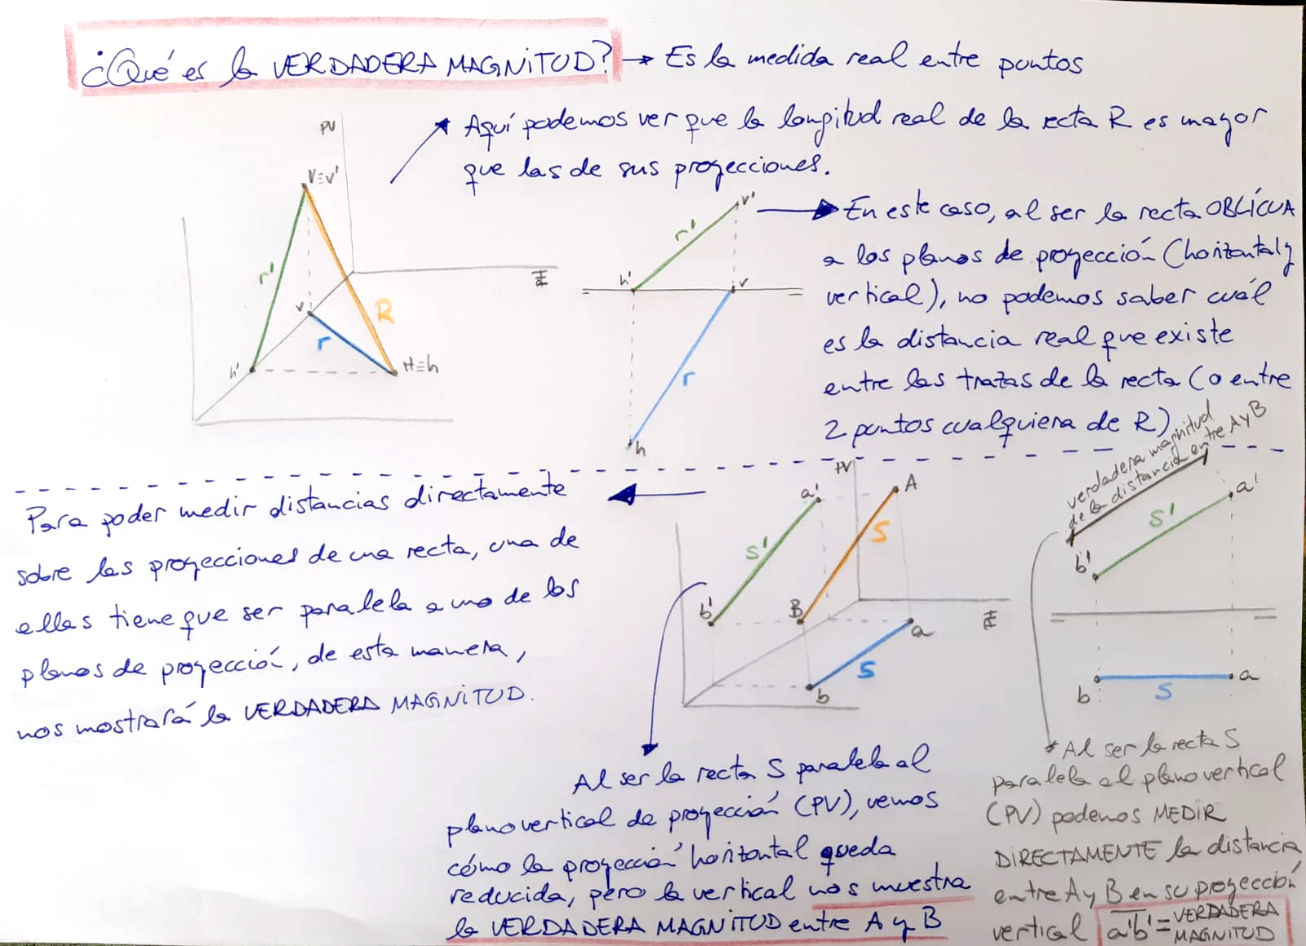 ¿Qué es la VERDADERA MAGNITUD? → Es la medida real entre puntos
Aquí podemos ver que la longitud real de la recta R es mayor
que las de sus proyecciones.
PV
V≡v'
r'
R
v
r
h'
H≡h
v'
r'
h'
v
r
h
En este caso, al ser la recta OBLÍCUA
a los planos de proyección (horizontal y
vertical), no podemos saber cuál
es la distancia real que existe
entre las trazas de la recta (o entre
2 puntos cualquiera de R)
Para poder medir distancias directamente
sobre las proyecciones de una recta, una de
ellas tiene que ser paralela a uno de los
planos de proyección, de esta manera,
nos mostrará la VERDADERA MAGNITUD.
PV
a'
A
s'
S
b'
B
a
s
b
verdadera magnitud
de la distancia entre A y B
a'
s'
b'
b
s
a
Al ser la recta S paralela al
plano vertical de proyección (PV), vemos
cómo la proyección horizontal queda
reducida, pero la vertical nos muestra
la VERDADERA MAGNITUD entre A y B
* Al ser la recta S
paralela al plano vertical
(PV) podemos MEDIR
DIRECTAMENTE la distancia
entre A y B en su proyección
vertical a'b' = VERDADERA
MAGNITUD